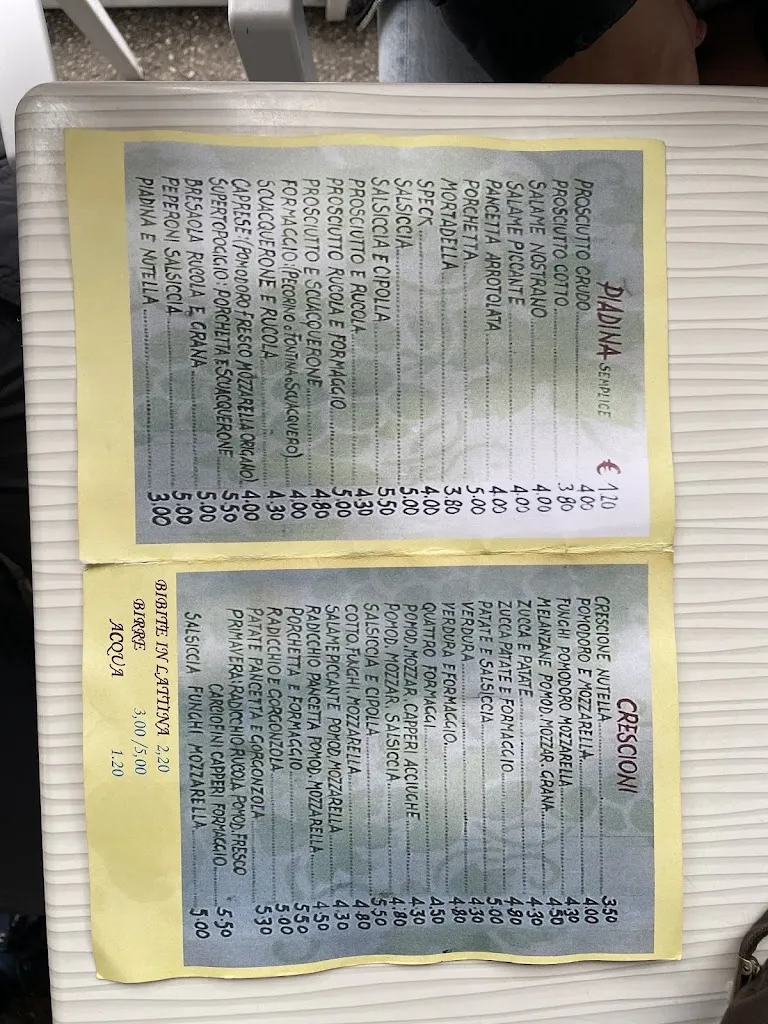 PIADINA SEMPLICE € 1.20
PROSCIUTTO CRUDO 4.00
PROSCIUTTO COTTO 3.80
SALAME NOSTRANO 4.00
SALAME PICCANTE 4.00
PANCETTA ARROTOLATA 4.00
PORCHETTA 5.00
MORTADELLA 3.80
SPECK 4.00
SALSICCIA 5.00
SALSICCIA E CIPOLLA 5.50
PROSCIUTTO E RUCOLA 4.30
PROSCIUTTO RUCOLA E FORMAGGIO 5.00
PROSCIUTTO E SQUACQUERONE 4.80
FORMAGGIO: (PECORINO o FONTINA o SQUACQUERO) 4.00
SQUACQUERONE E RUCOLA 4.30
CAPRESE: (POMODORO FRESCO MOZZARELLA ORIGANO) 4.00
SUPERTOPOGIGIO: PORCHETTA E SQUACQUERONE 5.50
BRESAOLA RUCOLA E GRANA 5.00
PEPERONI SALSICCIA 5.00
PIADINA E NUTELLA 3.00
CRESCIONI
CRESCIONE NUTELLA 3.50
POMODORO E MOZZARELLA 4.00
FUNGHI POMODORO MOZZARELLA 4.30
MELANZANE POMOD. MOZZAR. GRANA 4.50
ZUCCA E PATATE 4.30
ZUCCA PATATE E FORMAGGIO 4.80
PATATE E SALSICCIA 5.00
VERDURA 4.30
VERDURA E FORMAGGIO 4.80
QUATTRO FORMAGGI 4.50
POMOD. MOZZAR. CAPPERI ACCIUGHE 4.30
POMOD. MOZZAR. SALSICCIA 4.80
SALSICCIA E CIPOLLA 5.50
COTTO FUNGHI MOZZARELLA 4.80
SALAME PICCANTE POMOD. MOZZARELLA 4.30
RADICCHIO PANCETTA POMOD. MOZZARELLA 4.50
PORCHETTA E FORMAGGIO 5.50
RADICCHIO E GORGONZOLA 5.00
PATATE PANCETTA E GORGONZOLA 5.30
PRIMAVERA: RADICCHIO RUCOLA POMOD. FRESCO
CARCIOFINI CAPPERI FORMAGGIO 5.50
SALSICCIA FUNGHI MOZZARELLA 5.00
BIBITE IN LATTINA 2,20
BIRRE 3,00 /5,00
ACQUA 1.20